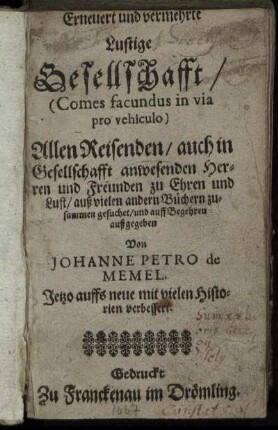 Erneuert und vermehrte
Lustige
Gesellschafft /
(Comes facundus in via
pro vehiculo)
Allen Reisenden / auch in
Gesellschafft anwesenden Her-
ren und Freunden zu Ehren und
Lust / auß vielen andern Büchern zu-
sammen gesuchet / und auff Begehren
außgegeben
Von
JOHANNE PETRO de
MEMEL.
Jetzo auffs neue mit vielen Histo-
rien verbessert.
Gedruckt
Zu Franckenau im Drömling.